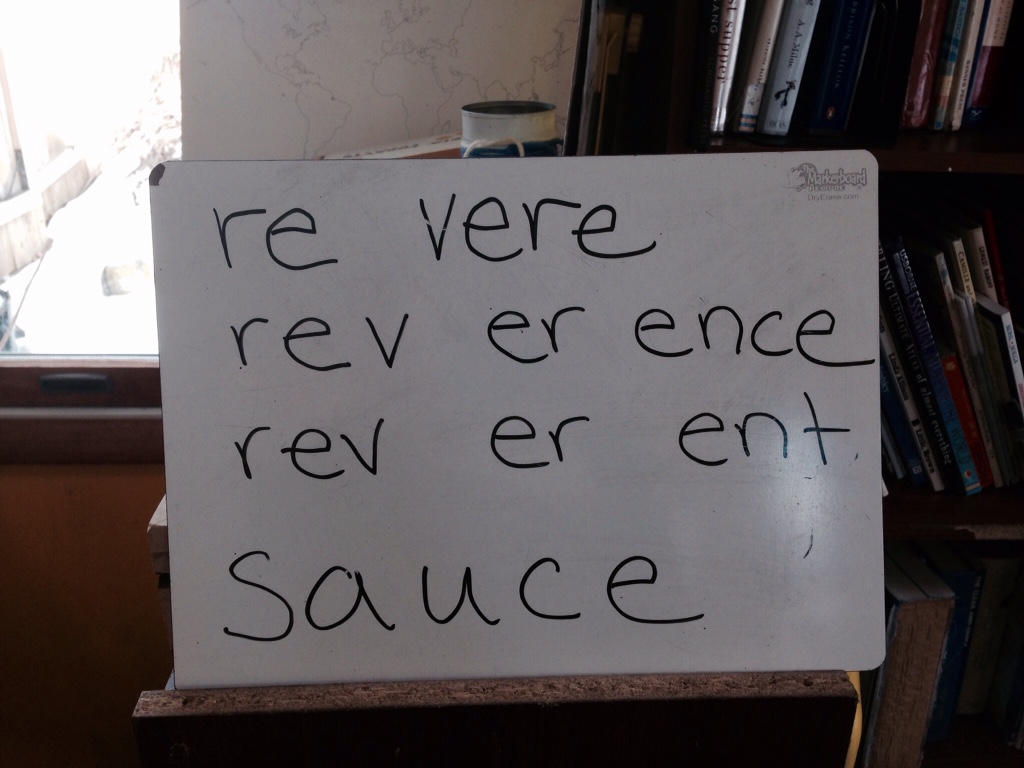 re vere
rev er ence
rev er ent
sauce
Markerboard
DryErase.com
supper
A.A. Milne